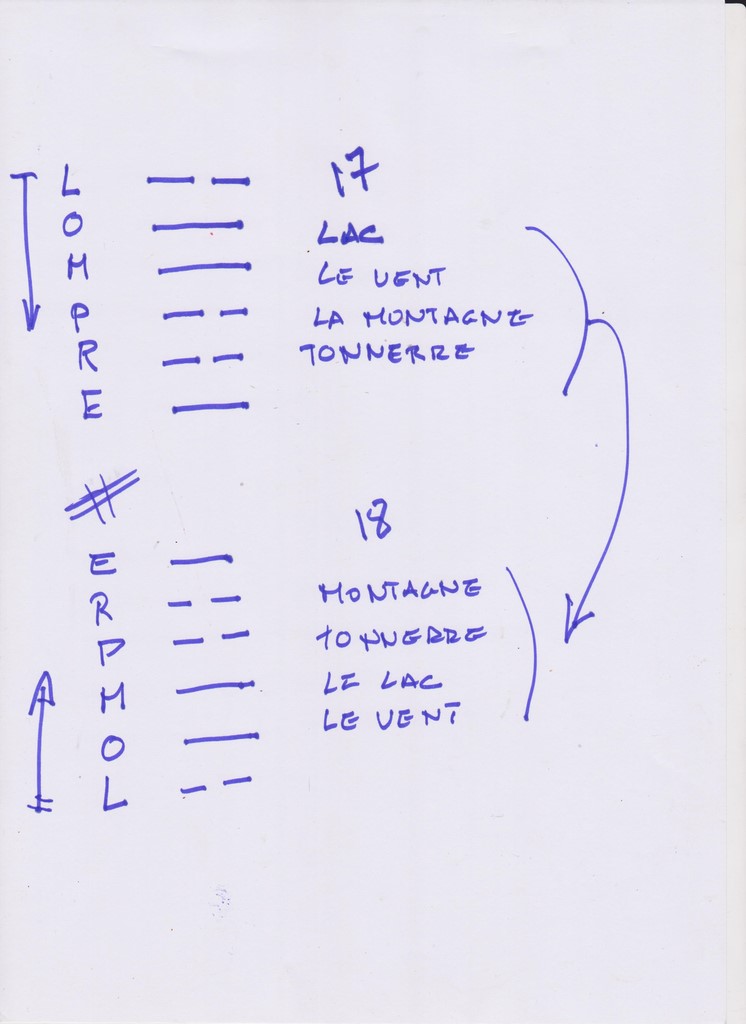 17
L
O LAC
M LE VENT
P LA MONTAGNE
R TONNERRE
E
18
E
R MONTAGNE
P TONNERRE
M LE LAC
O LE VENT
L